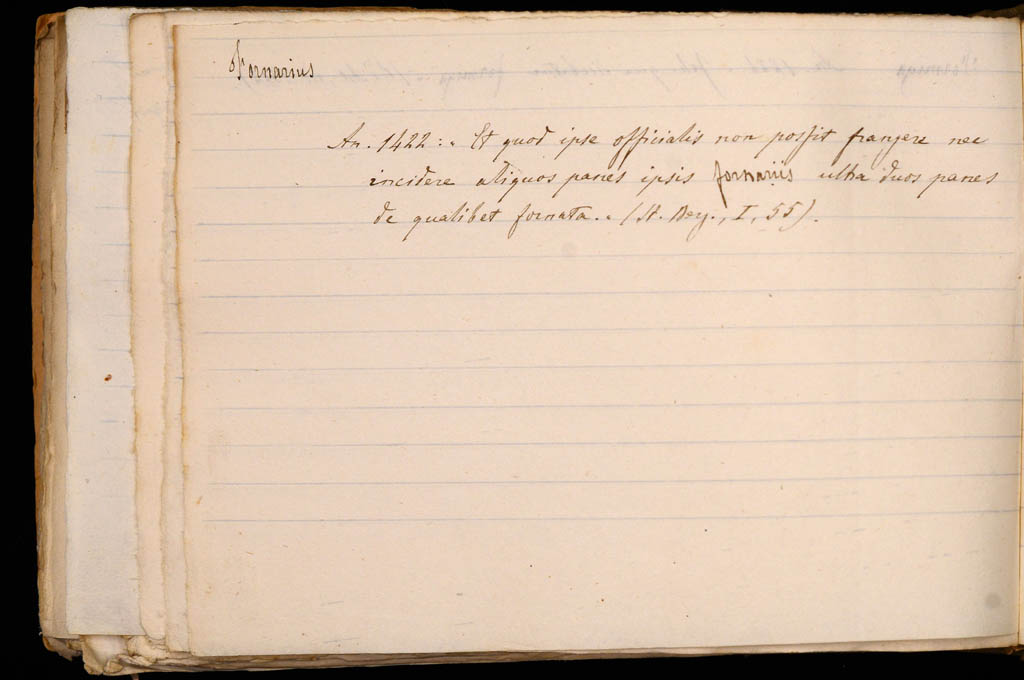 Fornarius
An. 1422: « Et quod ipse officialis non possit franjere nec
incidere aliquos panes ipsis fornariis ultra duos panes
de qualibet fornata. » (St. Rey., I, 55).